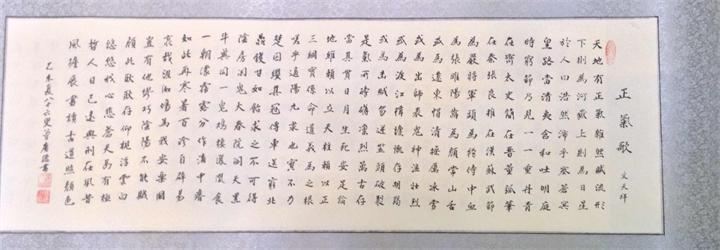 正氣歌
文天祥
天地有正氣雜然賦流形
下則為河嶽上則為日星
於人曰浩然沛乎塞蒼冥
皇路當清夷含和吐明庭
時窮節乃見一一垂丹青
在齊太史簡在晉董狐筆
在秦張良椎在漢蘇武節
為嚴將軍頭為嵇侍中血
為張睢陽齒為顏常山舌
或為遼東帽清操厲冰雪
或為出師表鬼神泣壯烈
或為渡江楫慷慨吞胡羯
或為擊賊笏逆豎頭破裂
是氣所磅礴凜烈萬古存
當其貫日月生死安足論
地維賴以立天柱賴以尊
三綱實係命道義為之根
嗟乎遘陽九隸也實不力
楚囚纓其冠傳車送窮北
鼎鑊甘如飴求之不可得
陰房闃鬼火春院閟天黑
牛驥同一皂雞棲鳳凰食
一朝濛霧露分作溝中瘠
如此再寒暑百沴自辟易
哀哉沮洳場為我安樂國
豈有他繆巧陰陽不能賊
顧此耿耿存仰視浮雲白
悠悠我心悲蒼天曷有極
哲人日已遠典刑在夙昔
風簷展書讀古道照顏色
乙未夏八十六叟書